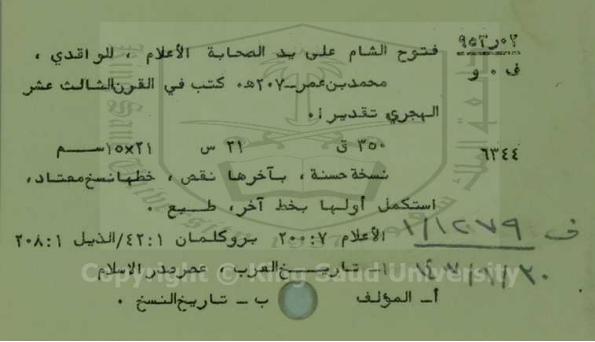 ٩٥٣٫٠٢ فتوح الشام على يد الصحابة الأعلام ، للواقدي ،
ف ٠ و محمد بن عمر ـ ٢٠٧هـ٠ كتب في القرن الثالث عشر
الهجري تقديرا٠
٦٣٤٤ ٣٥٠ ق ٢١ س ٢١×١٥ســم
نسخة حسنة ، بآخرها نقص ، خطها نسخ معتاد ،
استكمل أولها بخط آخر، طــبع ٠
ف ١/١٢٧٩ الأعلام ٧: ٢٠٠ بروكلمان ١: ٤٢/الذيل ١: ٢٠٨
١ـ تاريـــخ العرب ، عصر صدر الاسلام
أ ـ المؤلف ب ـ تاريخ النسخ ٠
Copyright © King Saud University